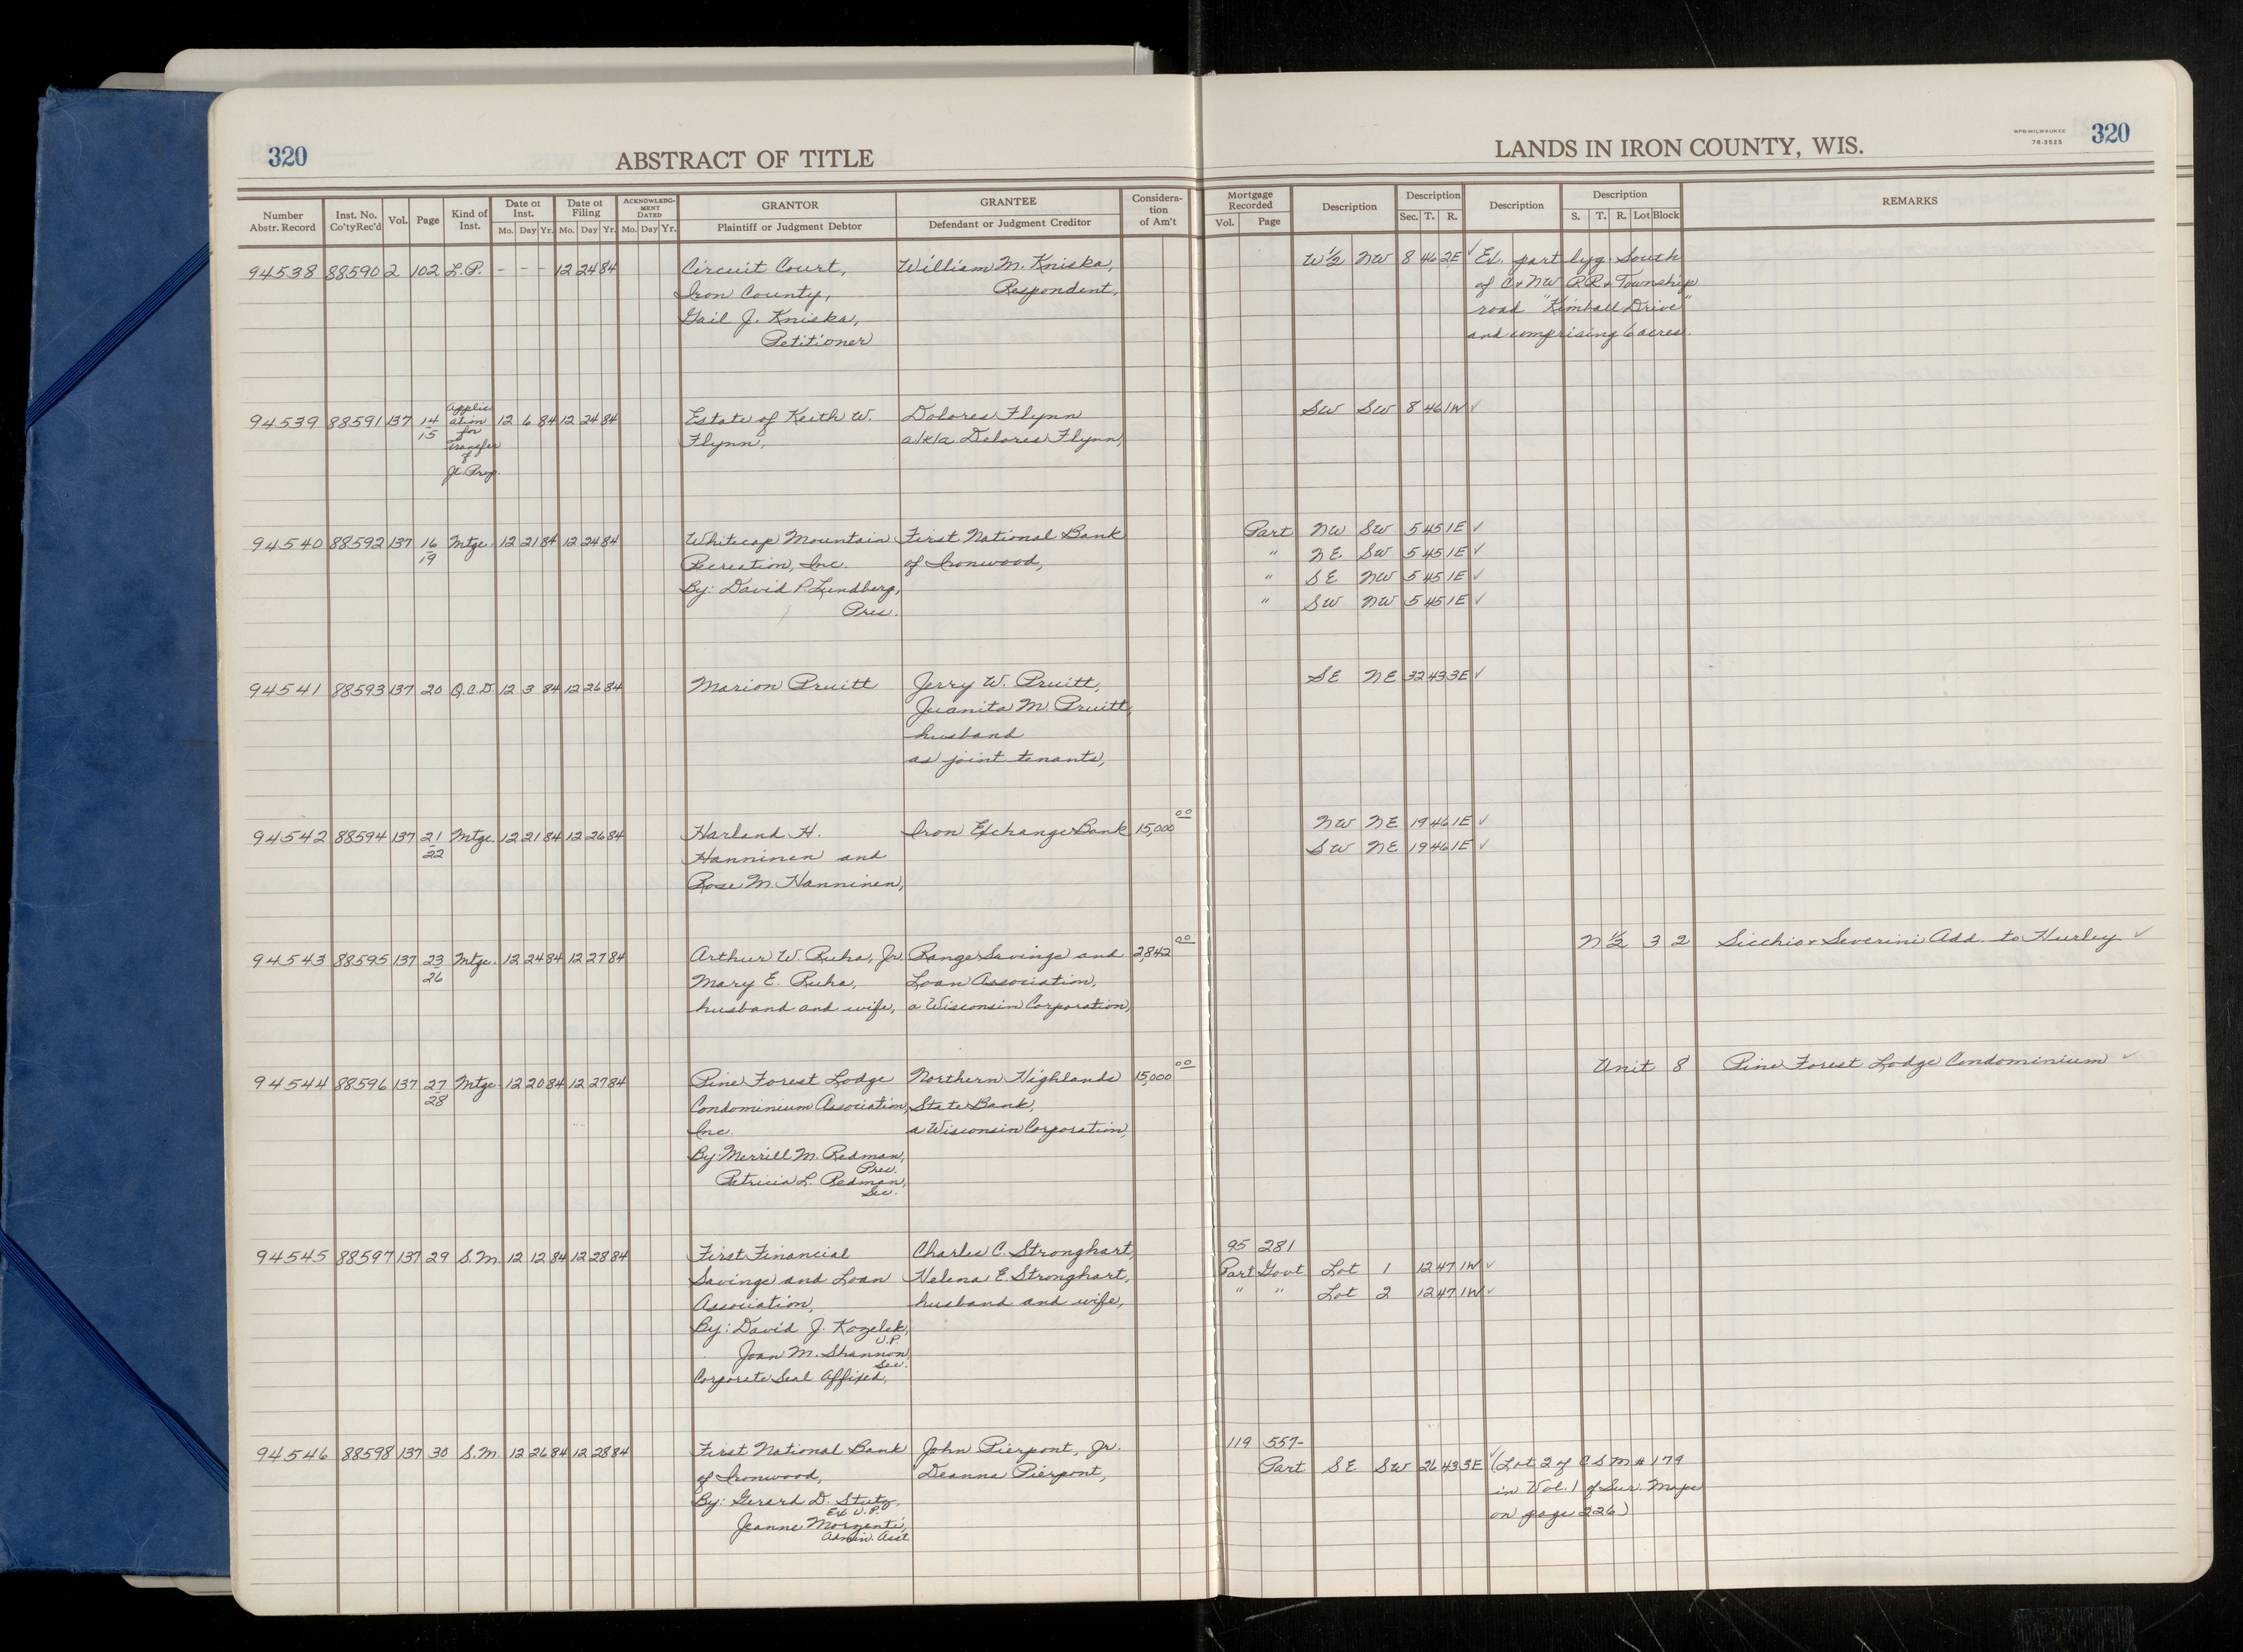 320
ABSTRACT OF TITLE
LANDS IN IRON COUNTY, WIS.
WPR-MILWAUKEE
76-3525
320
Number Abstr. Record
Inst. No. Co'ty Rec'd
Vol.
Page
Kind of Inst.
Date of Inst.
Mo. Day Yr.
Date of Filing
Mo. Day Yr.
ACKNOWLEDGMENT DATED
Mo. Day Yr.
GRANTOR
Plaintiff or Judgment Debtor
GRANTEE
Defendant or Judgment Creditor
Consideration of Am't
Mortgage Recorded
Vol. Page
Description
Description
Sec. T. R.
Description
Description
S. T. R. Lot Block
REMARKS
94538 88590 2 102 L.P. - - - 12 24 84 Circuit Court, William M. Kniska, W½ NW 8 46 2E ✓ Ex. part lyg. South
Iron County, Respondent, of C+NW RR + Township
Gail J. Kniska, road "Kimball Drive"
Petitioner and comprising 6 acres.
94539 88591 137 14/15 Application for Transfer of Jt. Prop. 12 6 84 12 24 84 Estate of Keith W. Dolores Flynn SW SW 8 46 1W ✓
Flynn, a/k/a Delores Flynn,
94540 88592 137 16/19 Mtge. 12 21 84 12 24 84 Whitecap Mountain First National Bank Part NW SW 5 45 1E ✓
Recreation, Inc. of Ironwood, " NE SW 5 45 1E ✓
By: David P. Lundberg, " SE NW 5 45 1E ✓
Pres. " SW NW 5 45 1E ✓
94541 88593 137 20 Q.C.D. 12 3 84 12 26 84 Marion Pruitt Jerry W. Pruitt, SE NE 32 43 3E ✓
Juanita M. Pruitt,
husband
as joint tenants,
94542 88594 137 21/22 Mtge. 12 21 84 12 26 84 Harland H. Iron Exchange Bank 15,000 00 NW NE 19 46 1E ✓
Hanninen and SW NE 19 46 1E ✓
Rose M. Hanninen,
94543 88595 137 23/26 Mtge. 12 24 84 12 27 84 Arthur W. Ruha, Jr. Range Savings and 2,842 00 N ½ 3 2 Sicchio + Severini Add. to Hurley ✓
Mary E. Ruha, Loan Association,
husband and wife, a Wisconsin Corporation,
94544 88596 137 27/28 Mtge. 12 20 84 12 27 84 Pine Forest Lodge Northern Highlands 15,000 00 Unit 8 Pine Forest Lodge Condominium ✓
Condominium Association, State Bank,
Inc. a Wisconsin Corporation,
By: Merrill M. Redman,
Pres.
Patricia L. Redman,
Sec.
94545 88597 137 29 S.M. 12 12 84 12 28 84 First Financial Charles C. Stronghart, 95 281
Savings and Loan Helena E. Stronghart, Part Govt Lot 1 12 47 1W ✓
Association, husband and wife, " " Lot 2 12 47 1W ✓
By: David J. Kozelek,
V.P.
Joan M. Shannon,
Sec.
Corporate Seal Affixed,
94546 88598 137 30 S.M. 12 26 84 12 28 84 First National Bank John Pierpont, Jr. 119 557-
of Ironwood, Deanna Pierpont, Part SE SW 26 43 3E ✓ (Lot 2 of CSM # 179
By: Gerard D. Stutz, in Vol. 1 of Sur. Maps
Ex V.P. on page 226)
Jeanne Morzenti,
Admin. Asst